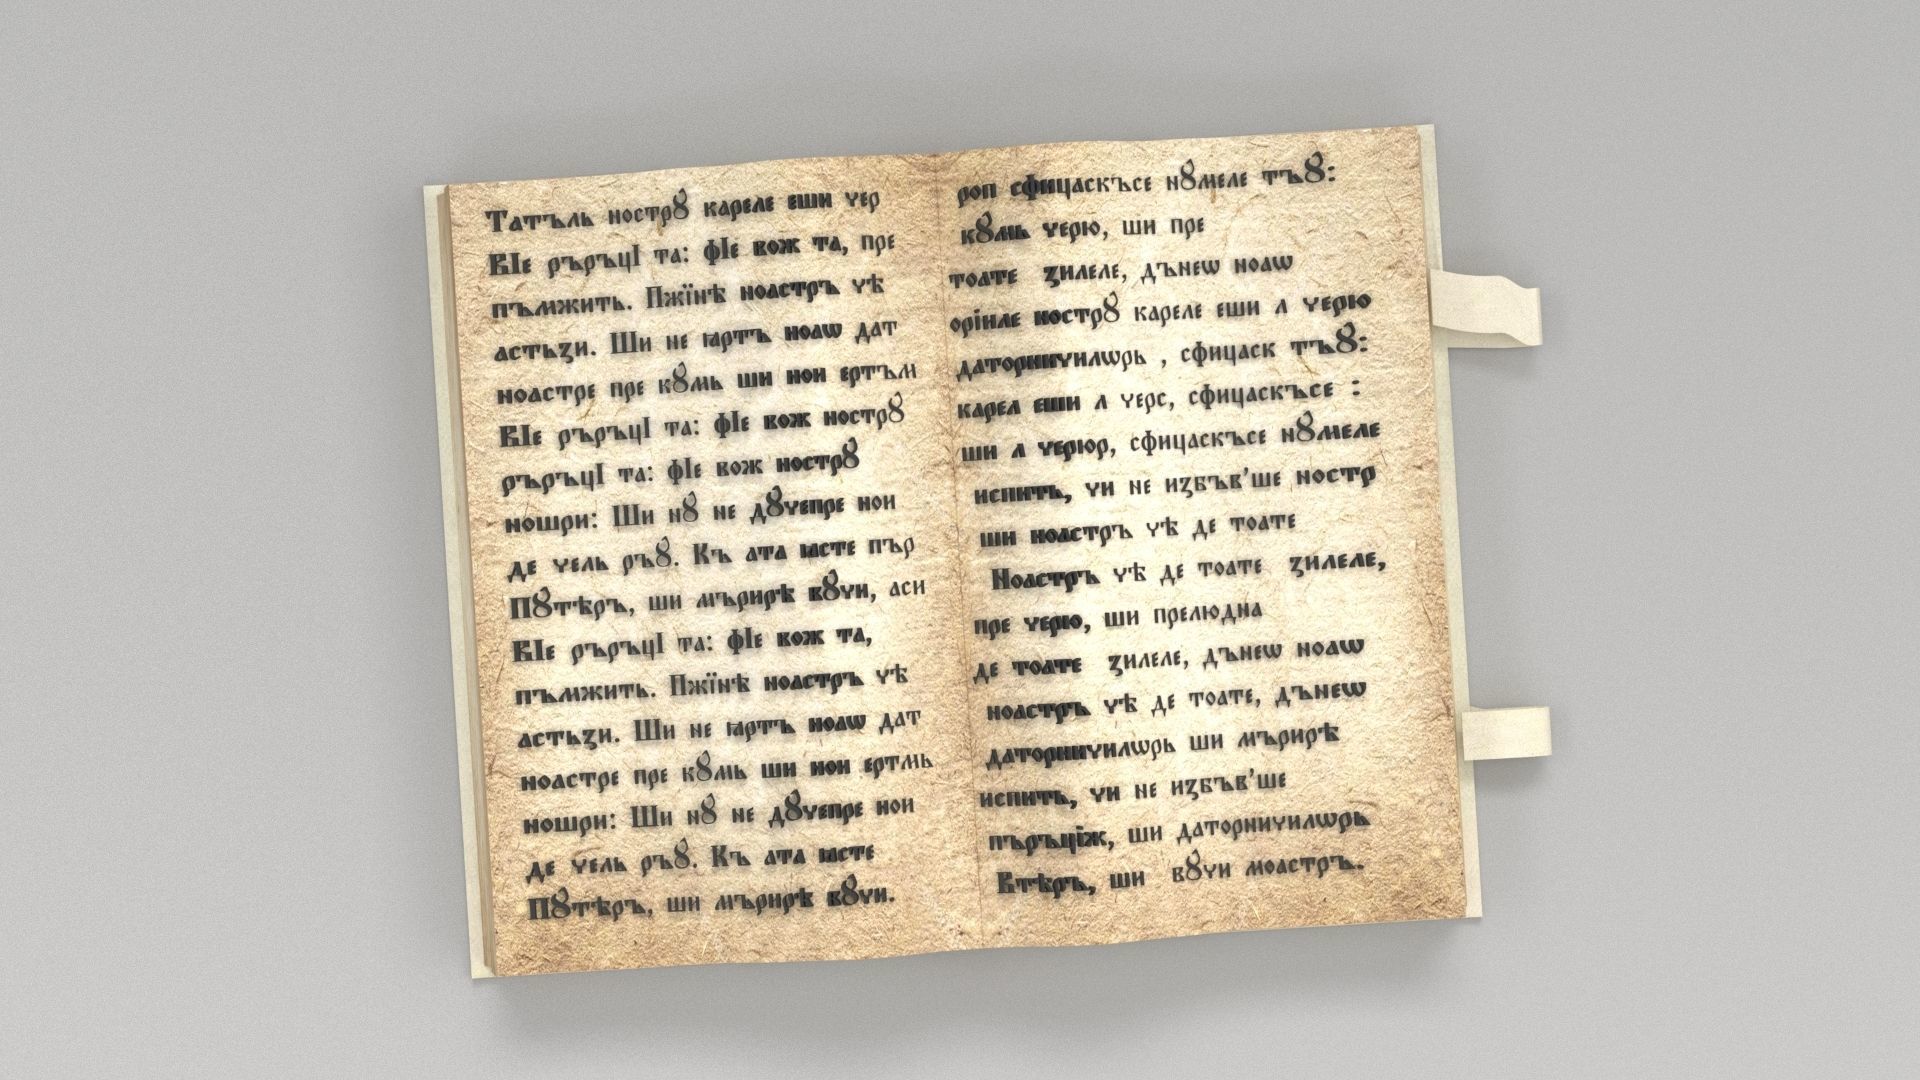 Татъль нострȣ кареле еши чер
ВІе ръръцІ та: фІе вож та, пре
пъмжить. Пжїнѣ ноастръ чѣ
астьꙁи. Ши не ꙗртъ ноаѡ дат
ноастре пре кȣмь ши нои ертъм
ВІе ръръцІ та: фІе вож нострȣ
ръръцІ та: фІе вож нострȣ
ношри: Ши нȣ не дȣчепре нои
де чель ръȣ. Къ ата ꙗсте пър
Пȣтѣръ, ши мърирѣ вȣчи, аси
ВІе ръръцІ та: фІе вож та,
пъмжить. Пжїнѣ ноастръ чѣ
астьꙁи. Ши не ꙗртъ ноаѡ дат
ноастре пре кȣмь ши нои ертмь
ношри: Ши нȣ не дȣчепре нои
де чель ръȣ. Къ ата ꙗсте
Пȣтѣръ, ши мърирѣ вȣчи.
роп сфицаскъсе нȣмеле тъȣ:
кȣмь черю, ши пре
тоате ꙁилеле, дънеѡ ноаѡ
оріиле нострȣ кареле еши л черю
даторничилѡрь , сфицаск тъȣ:
карел еши л черс, сфицаскъсе :
ши л черюр, сфицаскъсе нȣмеле
испить, чи не иꙁбъв'ше ностр
ши ноастръ чѣ де тоате
Ноастръ чѣ де тоате ꙁилеле,
пре черю, ши прелюдна
де тоате ꙁилеле, дънеѡ ноаѡ
ноастръ чѣ де тоате, дънеѡ
даторничилѡрь ши мърирѣ
испить, чи не иꙁбъв'ше
пъръціж, ши даторничилѡрь
Втѣръ, ши вȣчи моастръ.